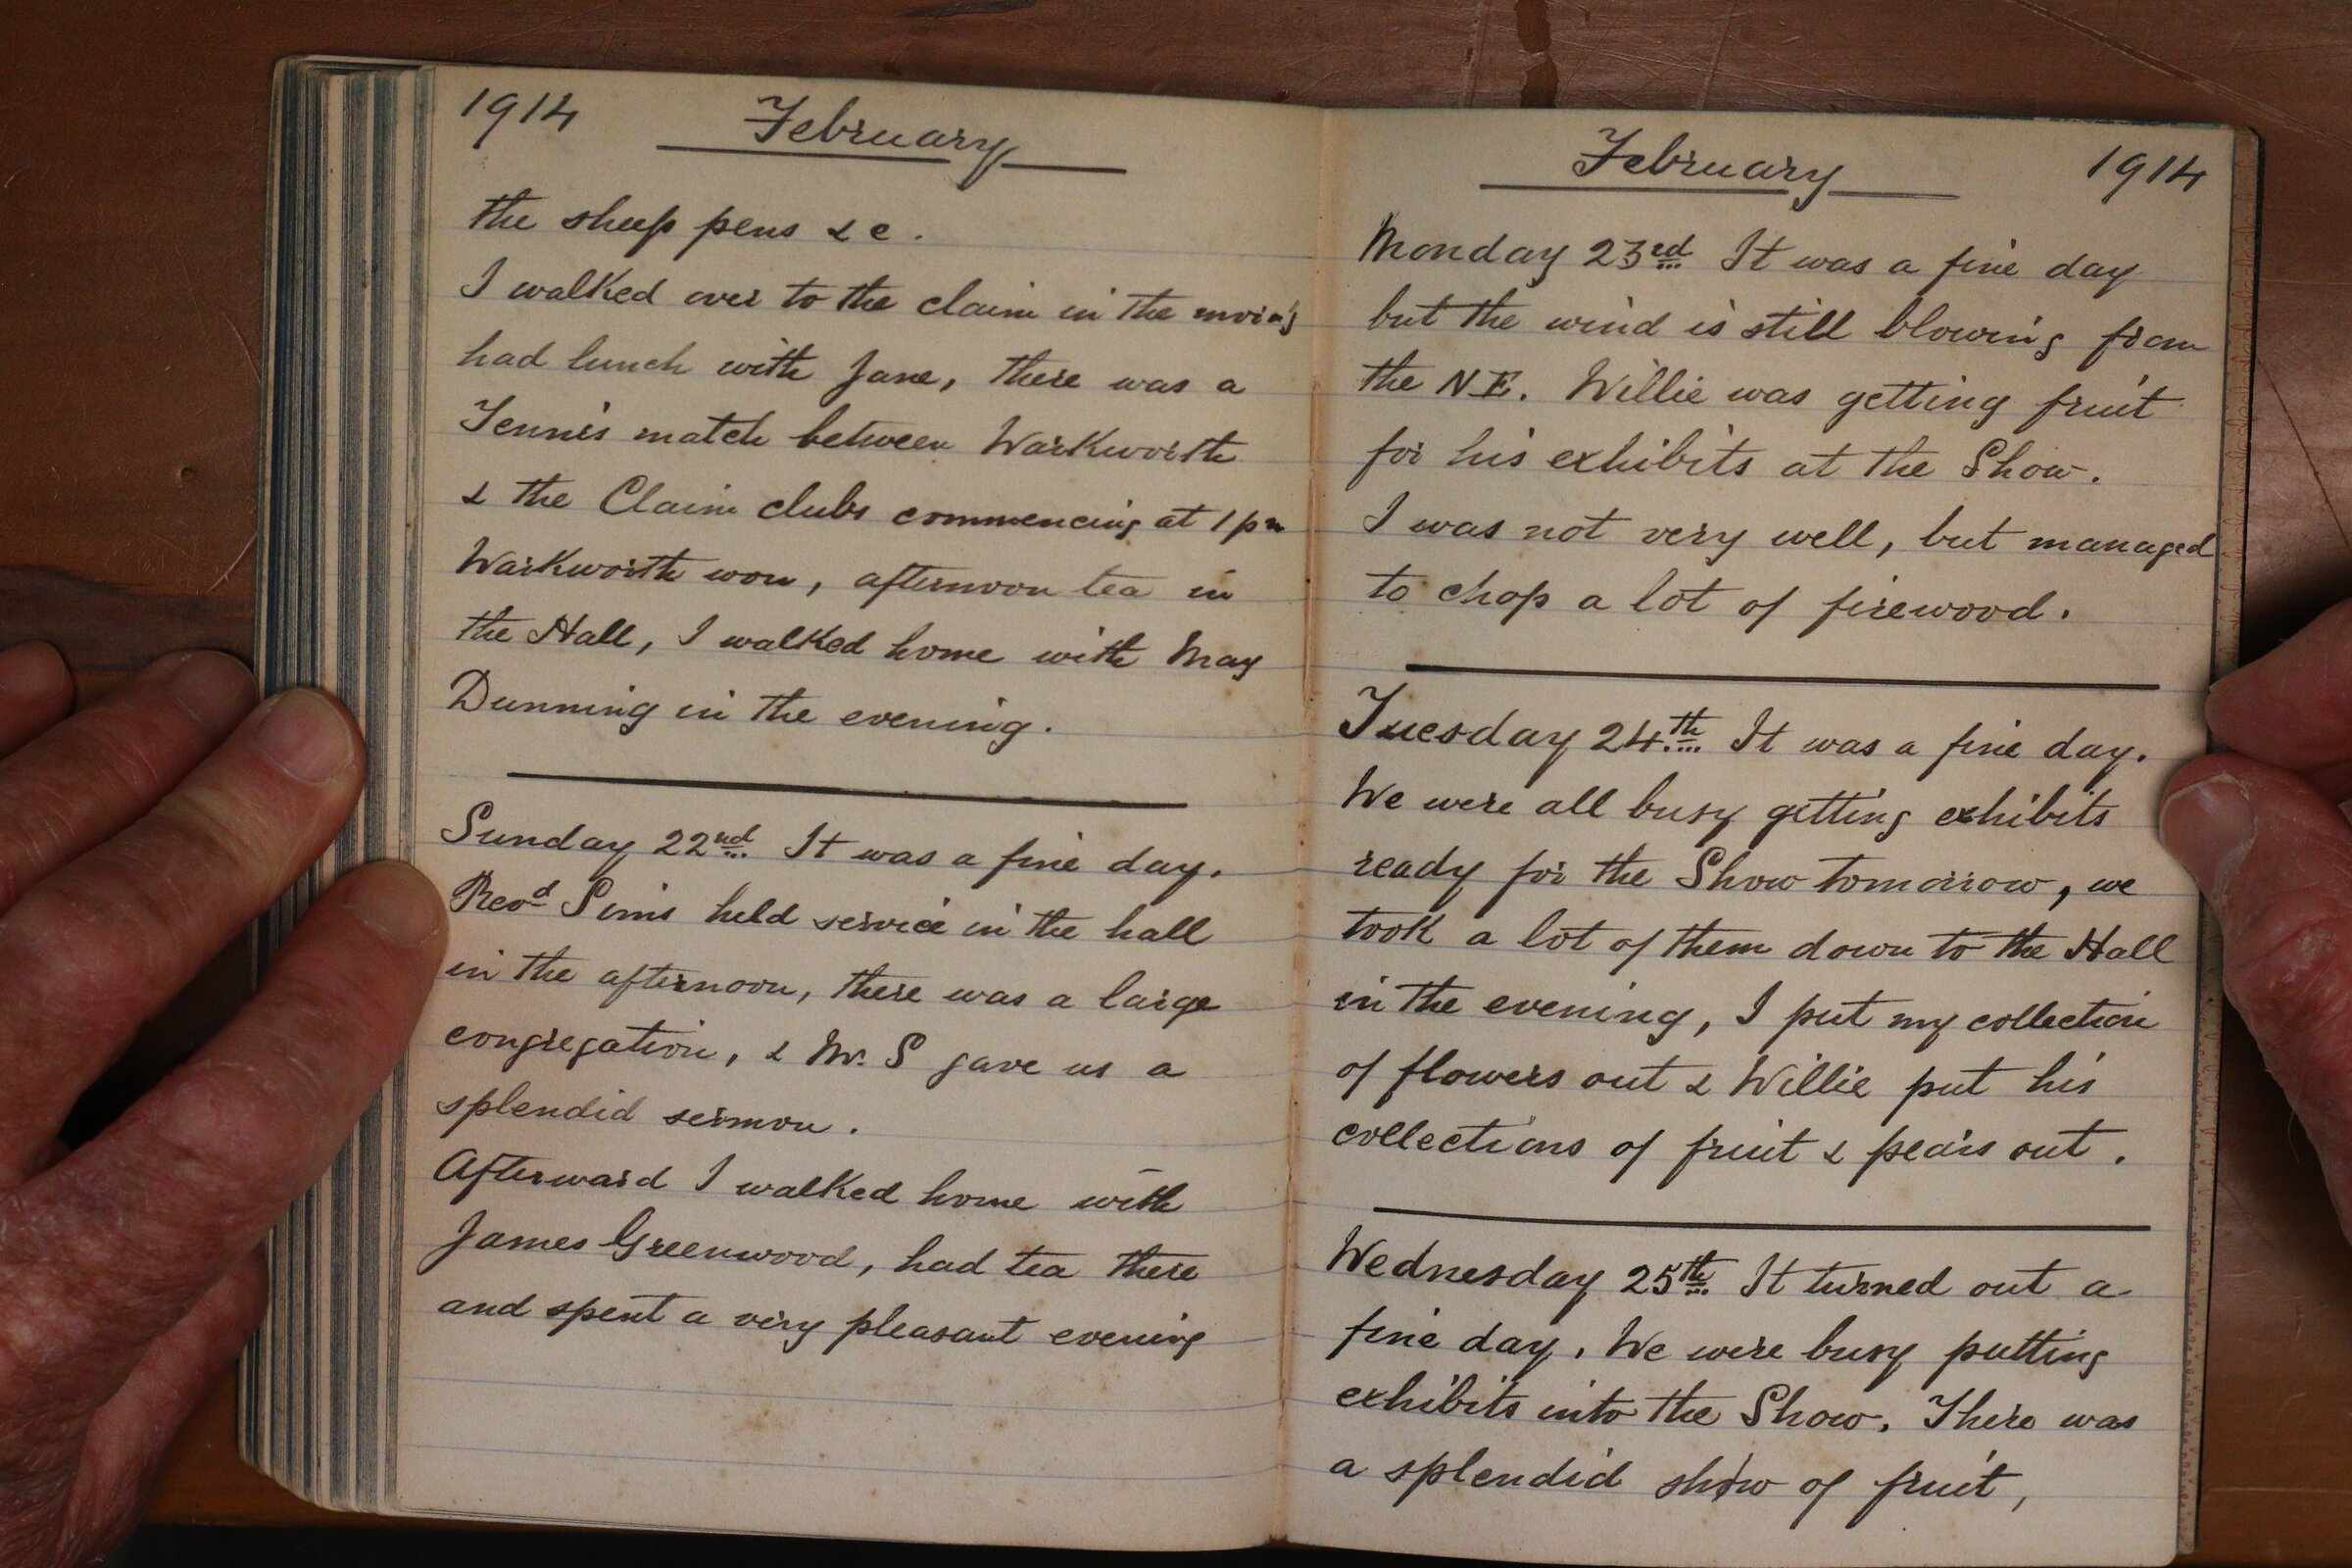 1914 February
the sheep pens &c.
I walked over to the claim in the morn'g
had lunch with Jane, there was a
Tennis match between Warkworth
& the Claim clubs commencing at 1 pm
Warkworth won, afternoon tea in
the Hall, I walked home with May
Dunning in the evening.
Sunday 22nd. It was a fine day.
Revd Sims held service in the hall
in the afternoon, there was a large
congregation, & Mr. S gave us a
splendid sermon.
Afterward I walked home with
James Greenwood, had tea there
and spent a very pleasant evening
February 1914
Monday 23rd It was a fine day
but the wind is still blowing from
the NE. Willie was getting fruit
for his exhibits at the Show.
I was not very well, but managed
to chop a lot of firewood.
Tuesday 24th It was a fine day.
We were all busy getting exhibits
ready for the Show tomorrow, we
took a lot of them down to the Hall
in the evening, I put my collection
of flowers out & Willie put his
collections of fruit & pears out.
Wednesday 25th It turned out a
fine day. We were busy putting
exhibits into the Show. There was
a splendid show of fruit,